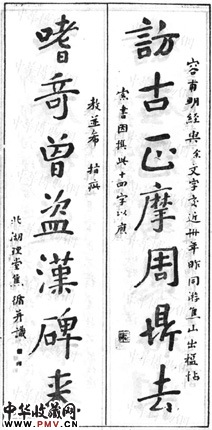 容甫明經與余文字交近卌年昨同游焦山出楹帖
訪古正摩周鼎去
索書因撰此十四字以應
教並希 指疵
嗜奇曾盗漢碑来
北湖理堂焦循并識
中华收藏网
www.PMV.cn